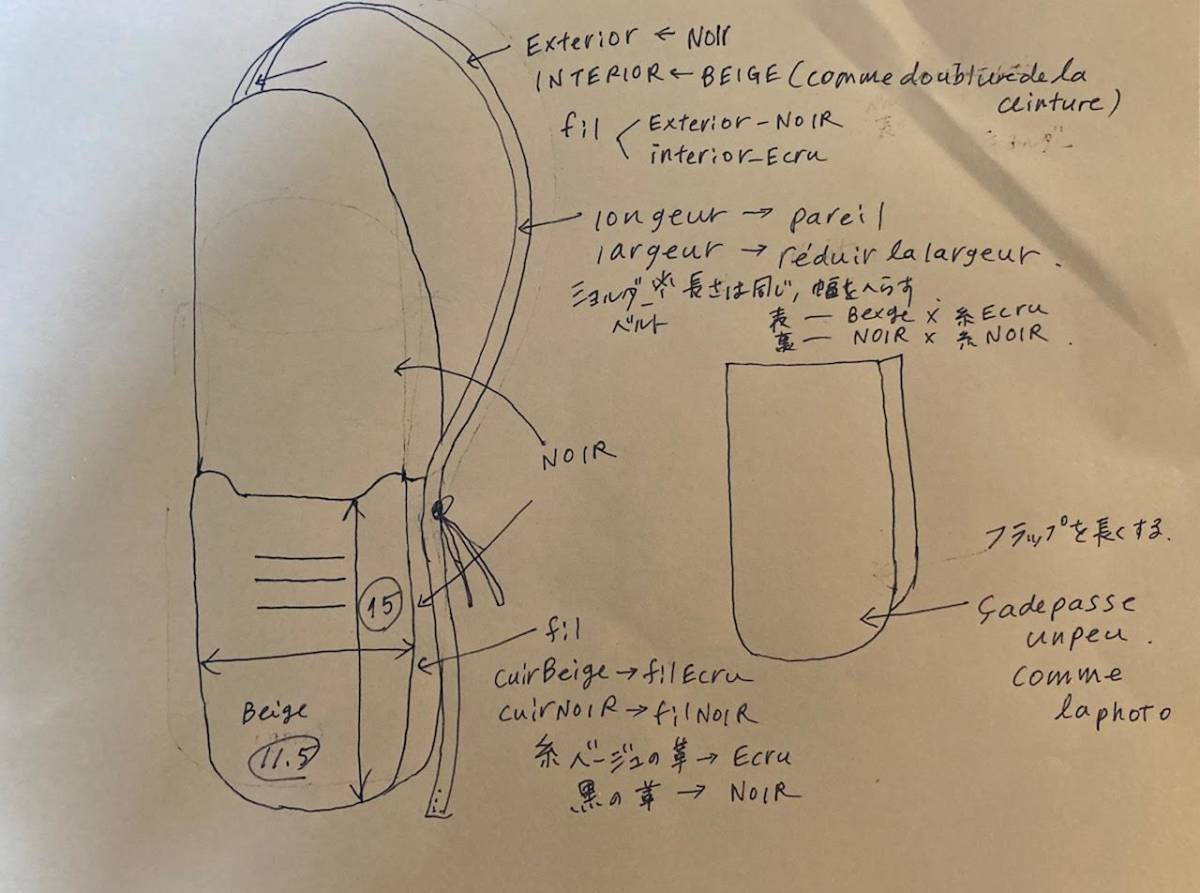 Exterior ← NOIR
INTERIOR ← BEIGE (comme doublure de la
ceinture)
fil
Exterior - NOIR
interior - Ecru
longeur → pareil
largeur → réduir la largeur.
ショルダー ※ 長さは同じ, 幅をへらす
ベルト
表 — Beige × 糸 Ecru
裏 — NOIR × 糸 NOIR.
NOIR
フラップを長くする.
15
Ça depasse
un peu.
comme
la photo
fil
cuir Beige → fil Ecru
cuir NOIR → fil NOIR
Beige
11.5
糸 ベージュの革 → Ecru
黒の革 → NOIR